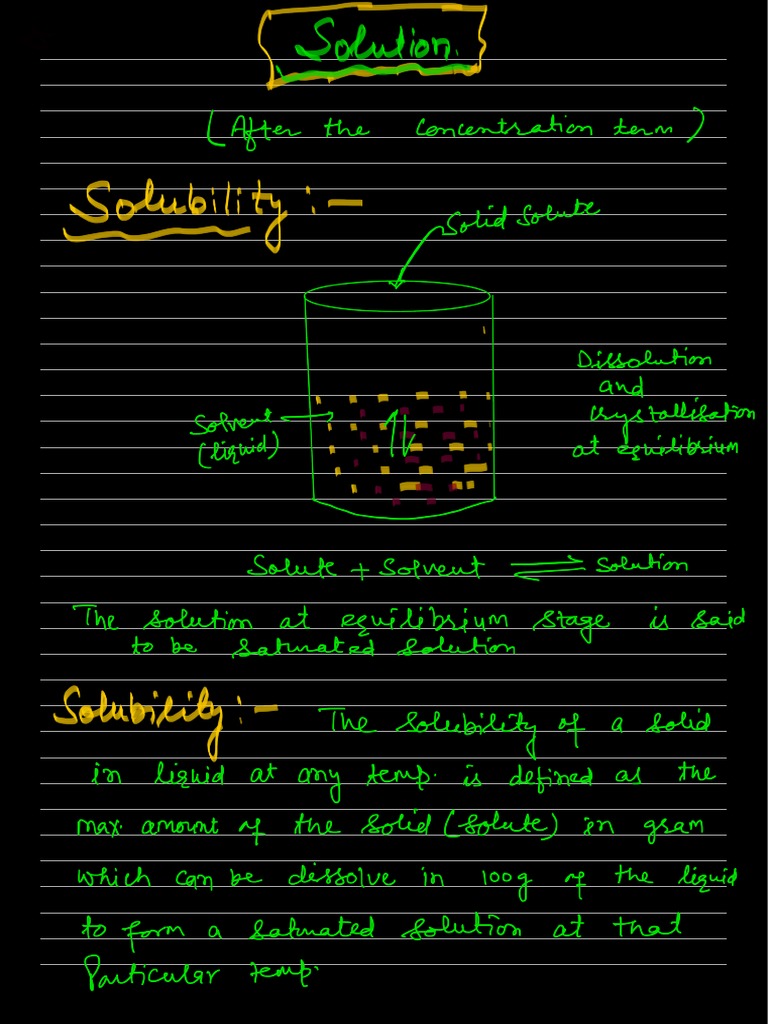 Solution.
(After the concentration term)
Solubility :-
Solid Solute
Dissolution
and
crystallisation
at equilibrium
Solvent
(liquid)
Solute + Solvent ⇌ Solution
The solution at equilibrium stage is said
to be saturated solution
Solubility :- The solubility of a solid
in liquid at any temp. is defined as the
max. amount of the solid (solute) in gram
which can be dissolve in 100g of the liquid
to form a saturated solution at that
Particular temp.